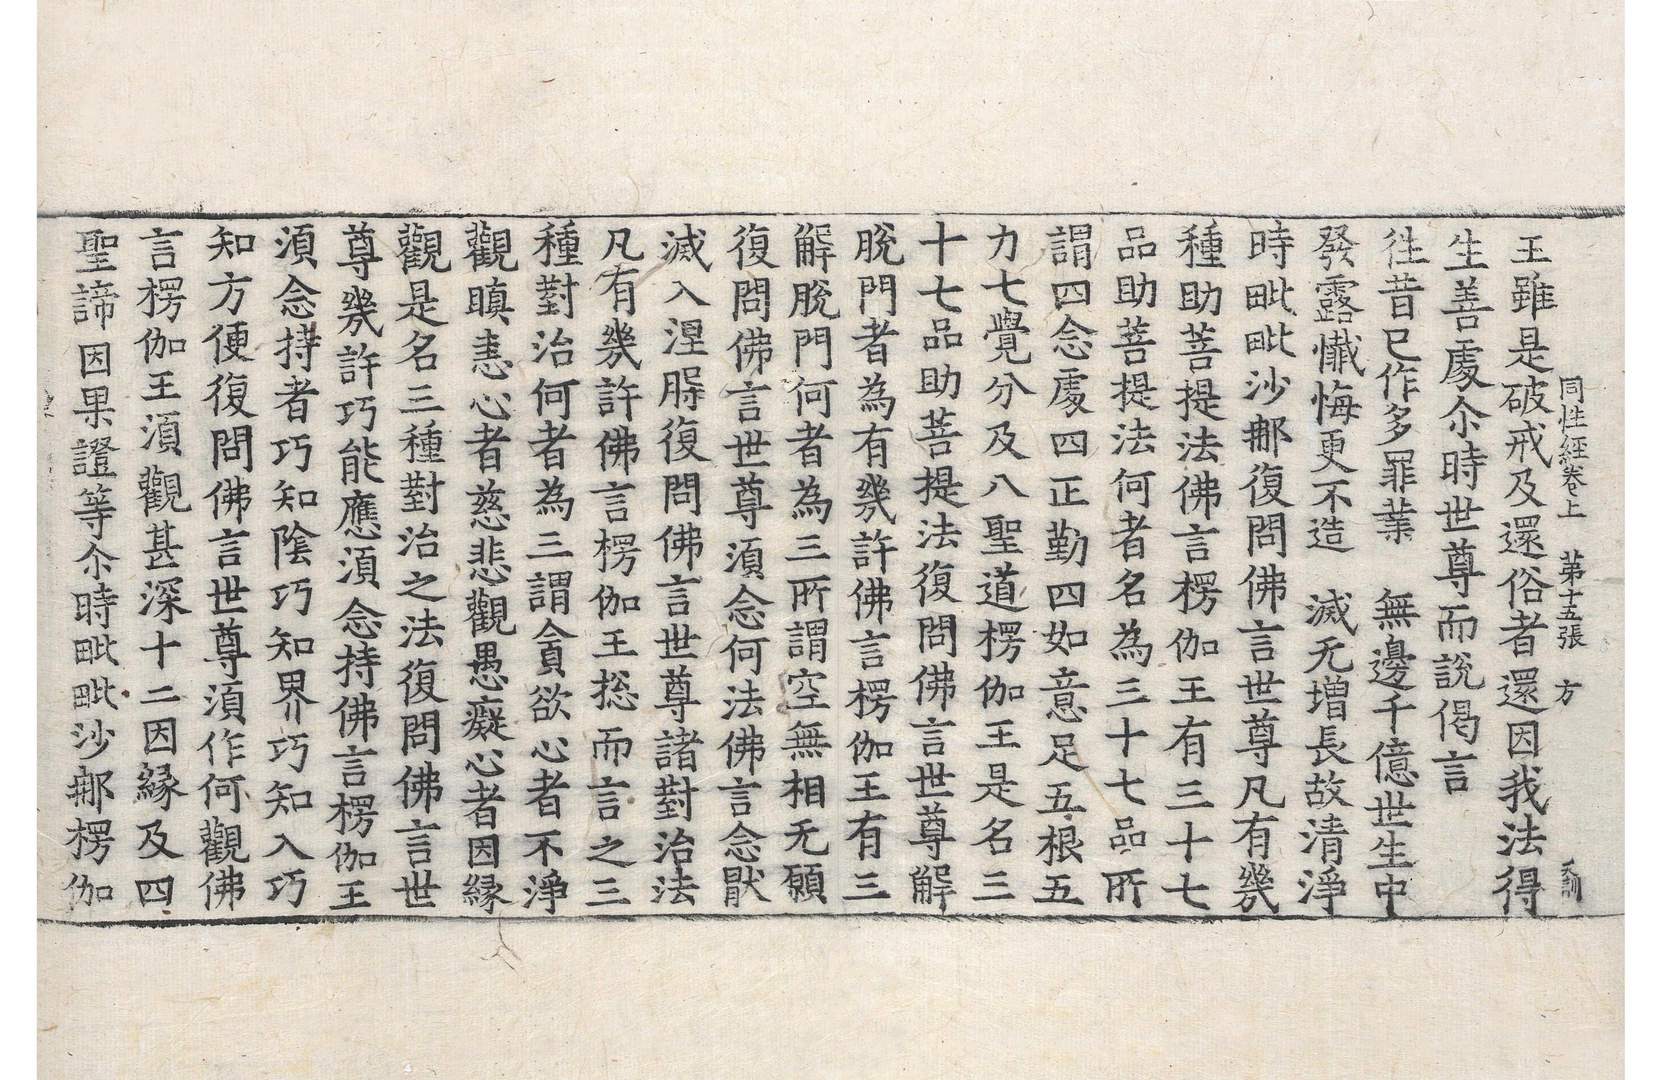 同性經卷上 第十五張 方
王雖是破戒及還俗者還因我法得
生善處尒時世尊而說偈言
徃昔已作多罪業 無邊千億世生中
發露懴悔更不造 滅无增長故清淨
時毗毗沙郍復問佛言世尊凡有㡬
種助菩提法佛言楞伽王有三十七
品助菩提法何者名為三十七品所
謂四念處四正勤四如意足五根五
力七覺分及八聖道楞伽王是名三
十七品助菩提法復問佛言世尊解
脫門者為有㡬許佛言楞伽王有三
解脫門何者為三所謂空無相无願
復問佛言世尊湏念何法佛言念猒
滅入涅槃復問佛言世尊諸對治法
凡有㡬許佛言楞伽王捴而言之三
種對治何者為三謂貪欲心者不淨
觀瞋恚心者慈悲觀愚癡心者因緣
觀是名三種對治之法復問佛言世
尊㡬許巧能應湏念持佛言楞伽王
湏念持者巧知陰巧知界巧知入巧
知方便復問佛言世尊湏作何觀佛
言楞伽王湏觀甚深十二因緣及四
聖諦因果證等尒時毗毗沙郍楞伽